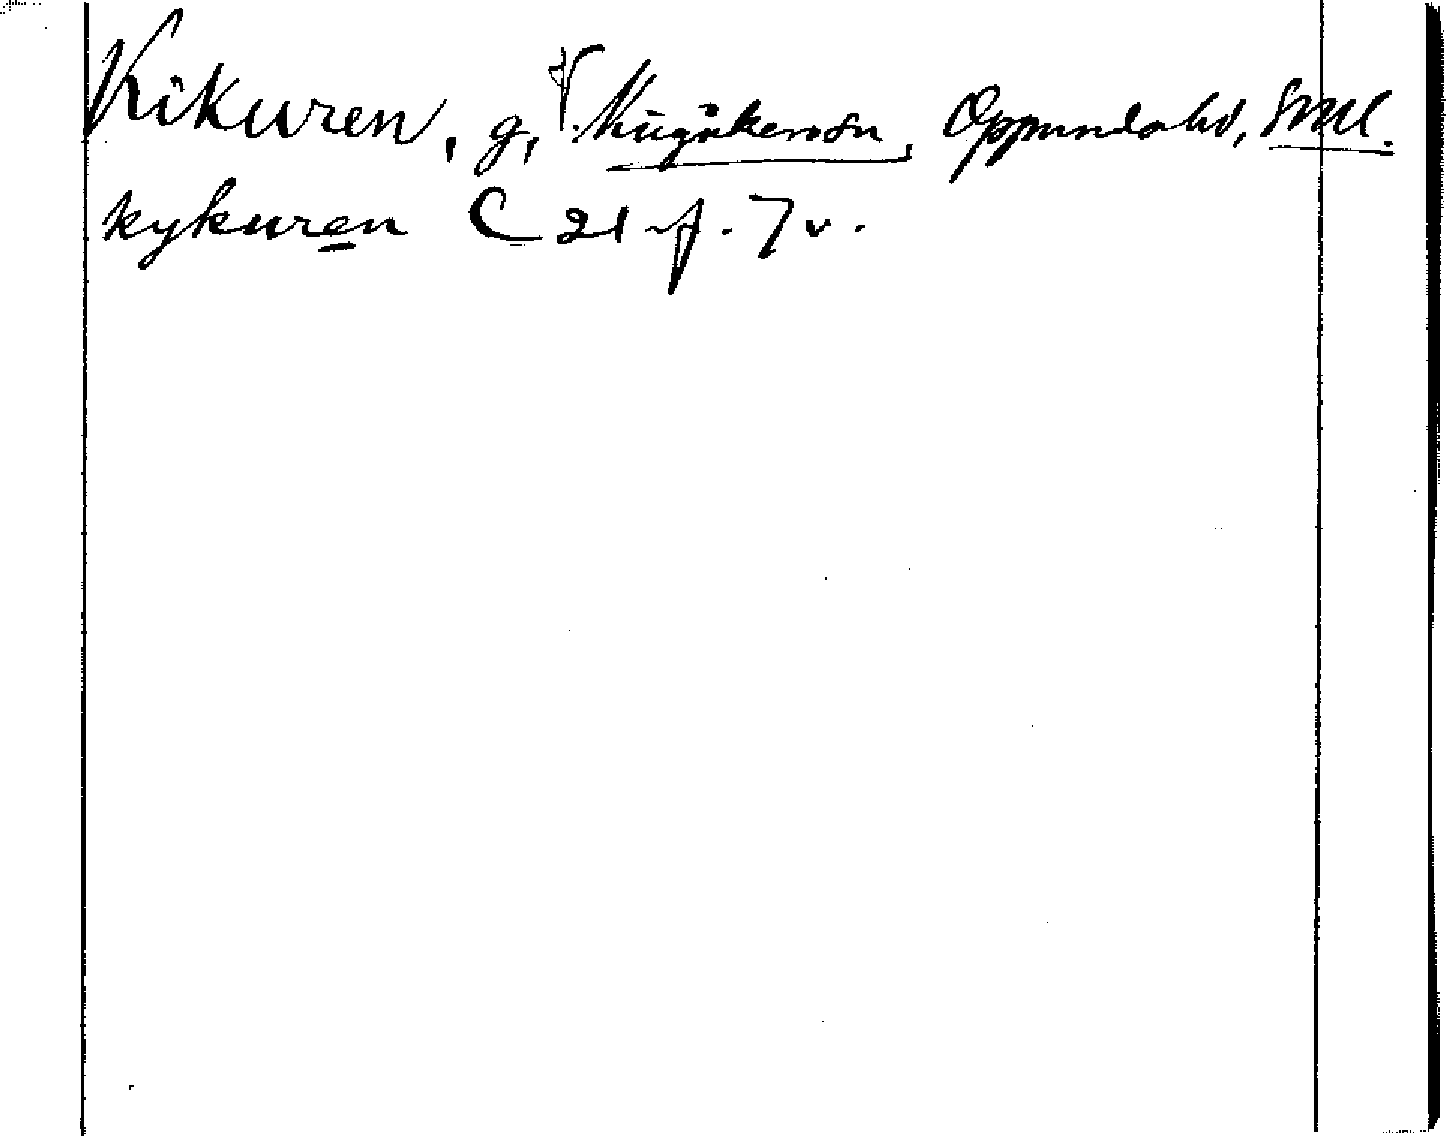 Kikuren, g, V. Vingåkers sn, Oppunda hd, Sml.
kykuren C 21 f. 7 v.